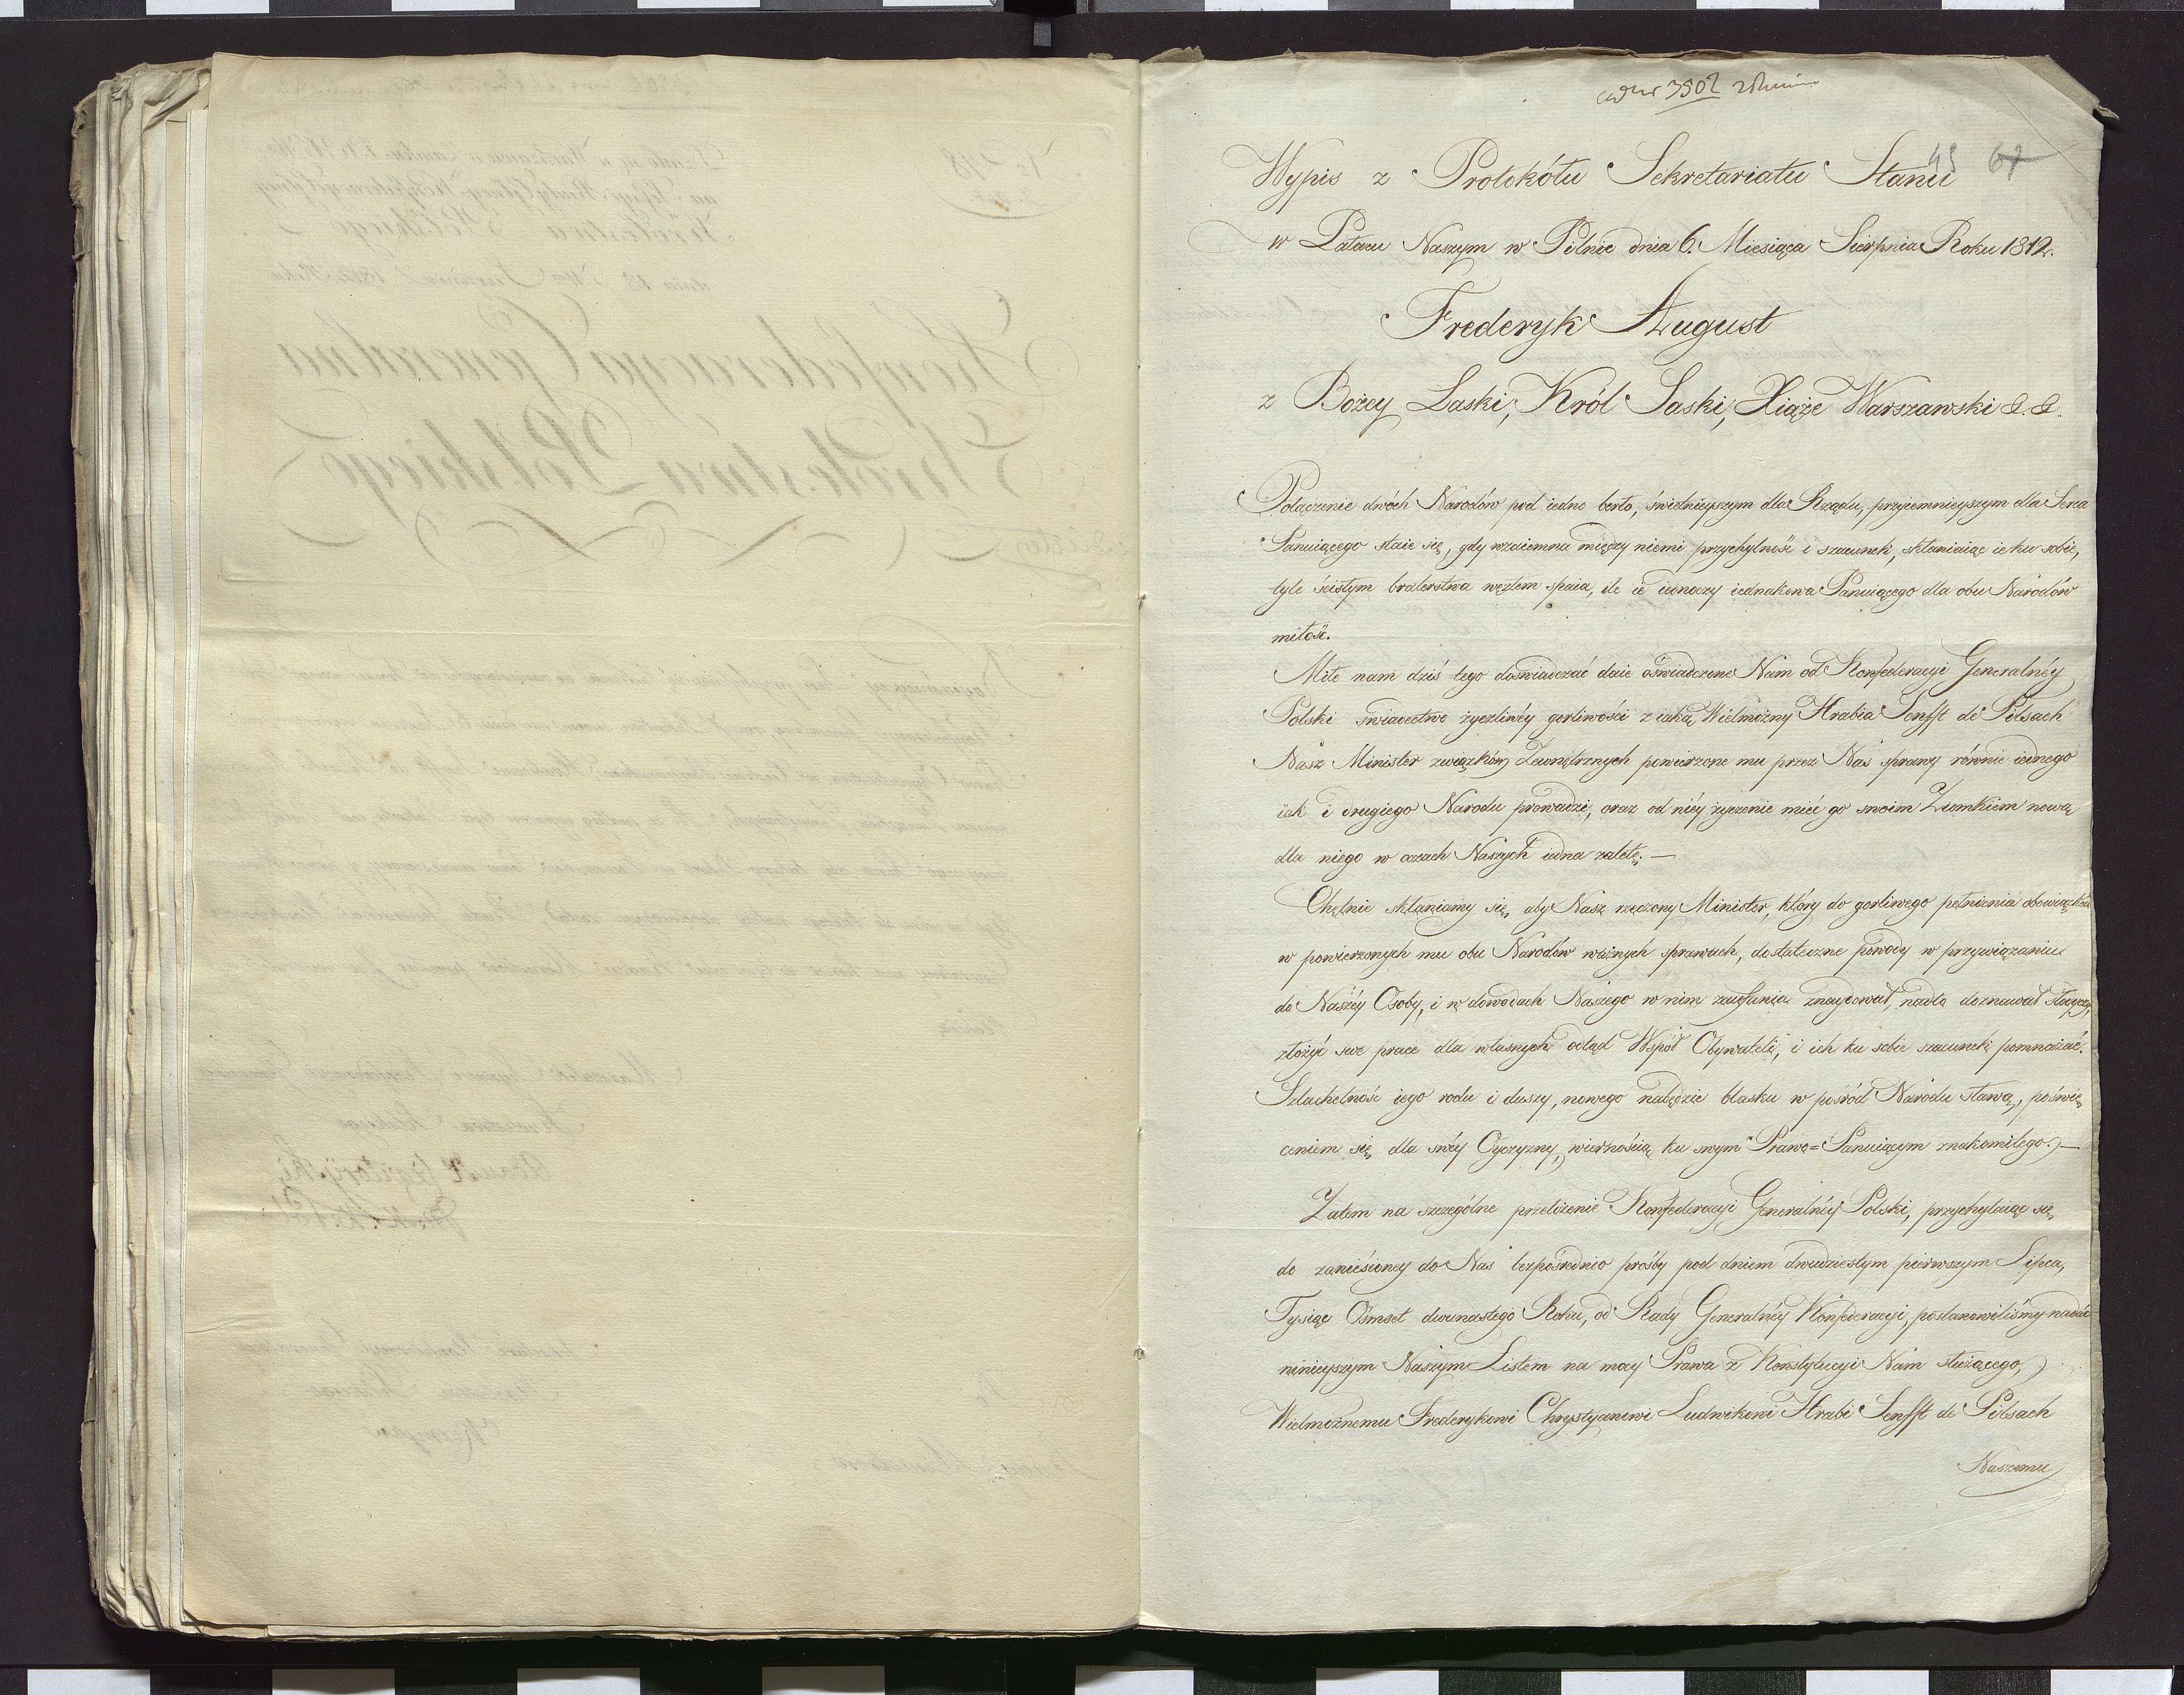 3502
45 67
Wypis z Protokółu Sekretariatu Stanu
w Pałacu Naszym w Pilnic dnia 6. Miesiąca Sierpnia Roku 1812.
Frederyk August
z Bożey Łaski, Król Saski, Xiąże Warszawski &. &.
Połączenie dwóch Narodów pod iedno berło, świetnieyszym dla Rządu, przyiemnieyszym dla Serca
Panuiącego staie się, gdy wzaiemna między niemi przychylność i szacunek, skłaniaiąc ie ku sobie,
tyle ścisłym braterstwa węzłem spaia, ile ie iednoczy iednakowa Panuiącego dla obu Narodów
miłość.
Miłe nam dziś tego doświadczać daie oświadczone Nam od Konfederacyi Generalnéy
Polski świadectwo życzliwéy gorliwości z iaką Wielmożny Hrabia Senfft de Pilsach
Nasz Minister związków Zewnętrznych powierzone mu przez Nas sprawy równie iednego
iak i drugiego Narodu prowadzi, oraz od niéy życzenie mieć go swoim Ziomkiem nową
dla niego w oczach Naszych iedna zaletę. —
Chętnie skłaniamy się, aby Nasz rzeczony Minister, który do gorliwego pełnienia obowiązków
w powierzonych mu obu Narodów ważnych sprawach, dostateczne powody w przywiązaniu
do Naszéy Osoby, i w dowodach Naszego w nim zaufania znaydował, nadto doznawał słodyczy,
złożyć swe prace dla własnych odtąd Współ Obywateli, i ich ku sobie szacunek pomnażać.
Szlachetność iego rodu i duszy, nowego nabędzie blasku w pośród Narodu sławą, poświę
ceniem się dla swéy Oyczyzny, wiernością ku swym Prawo=Panuiącym znakomitego. —
Zatem na szczególne przełożenie Konfederacyi Generalnéy Polski, przychylaiąc się,
do zaniesioney do Nas bezpośrednio prośby pod dniem dwudziestym pierwszym Lipca,
Tysiąc Ośmset dwunastego Roku, od Rady Generalnéy Konfederacyi, postanowiliśmy nadać
ninieyszym Naszym Listem na mocy Prawa z Konstytucyi Nam służącego,
Wielmożnemu Frederykowi Chrystyanowi Ludwikowi Hrabi Senfft de Pilsach
Naszemu